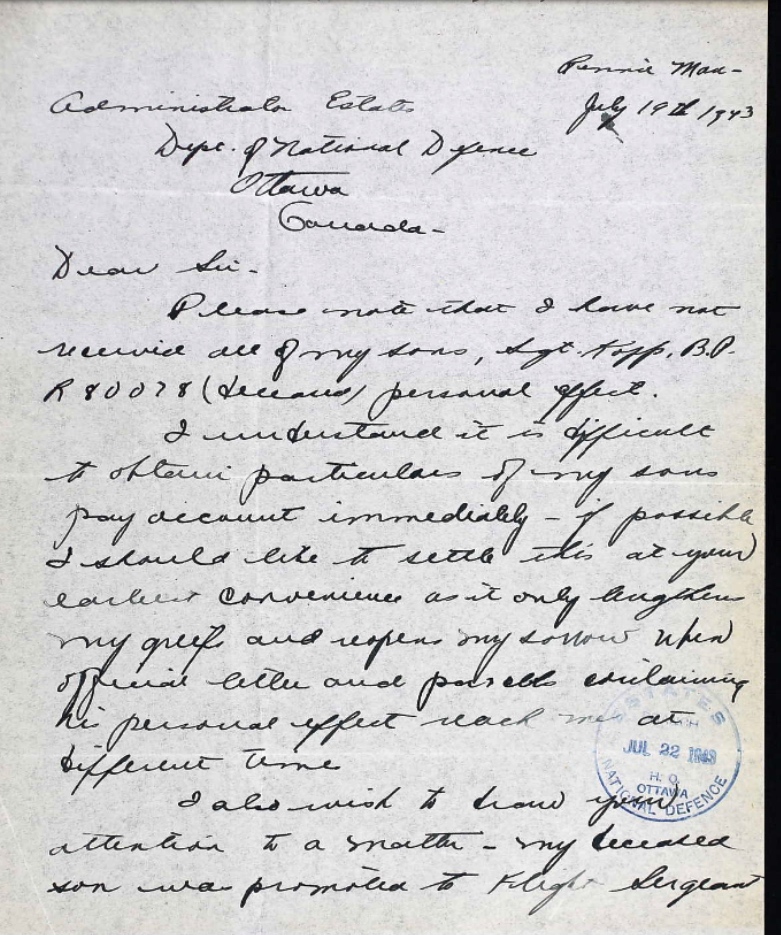 Rennie Man-
July 19th 1943
Administrator Estates
Dept. of National Defence
Ottawa
Canada-
Dear Sir-
Please note that I have not
received all of my sons, Sgt. Kopp. B.P.
R80078 (deceased) personal effect.
I understand it is difficult
to obtain particulars of my sons
pay account immediately - if possible
I should like to settle this at your
earliest convenience as it only lengthens
my griefs and reopens my sorrow when
official letter and parcels containing
his personal effect reach me at
different time
I also wish to draw your
attention to a matter - my deceased
son was promoted to Flight Sergeant
ESTATES
BRANCH
JUL 22 1943
H. Q.
OTTAWA
NATIONAL DEFENCE